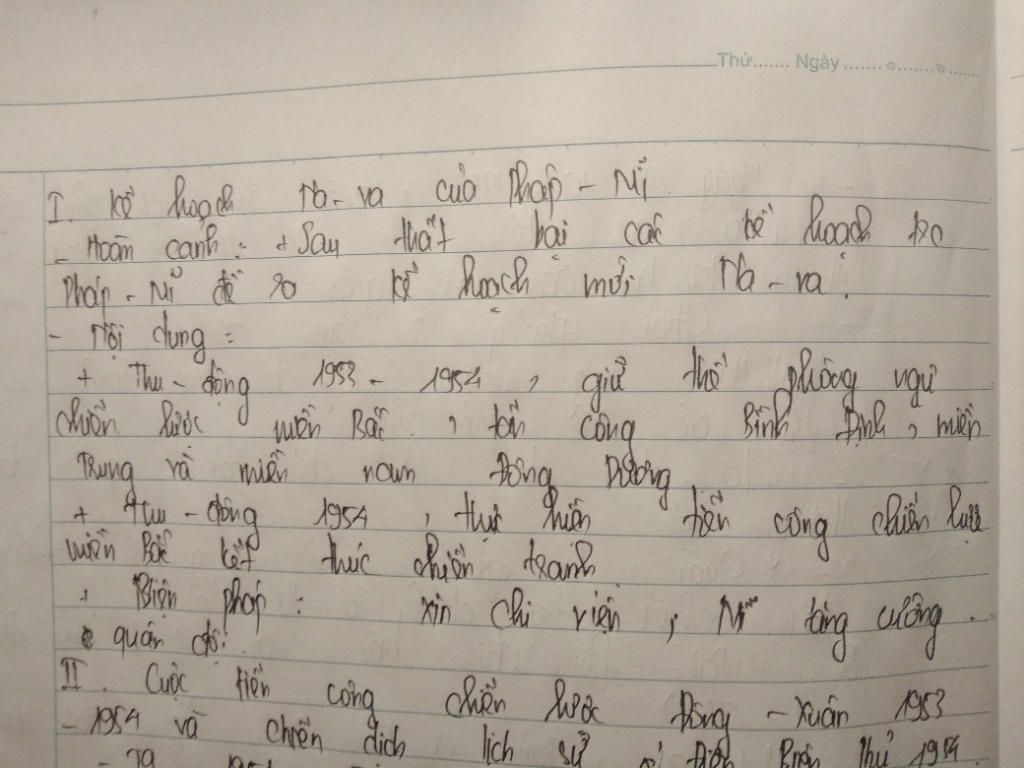 Thứ....... Ngày.......
I. Kế hoạch Na-va của Pháp - Mĩ
- Hoàn cảnh: + Sau thất bại các kế hoạch do
Pháp - Mĩ đề ra kế hoạch mới Na-va.
- Nội dung:
+ Thu-đông 1953-1954, giữ thế phòng ngự
chiến lược miền Bắc, tấn công Bình Định, miền
Trung và miền nam Đông Dương
+ thu-đông 1954, thực hiện tiến công chiến lược
miền Bắc kết thúc chiến tranh
+ Biện pháp: xin chi viện, Mĩ tăng cường.
quân đội.
II. Cuộc tiến công chiến lược Đông - Xuân 1953
- 1954 và chiến dịch lịch sử Điện Biên Phủ 1954